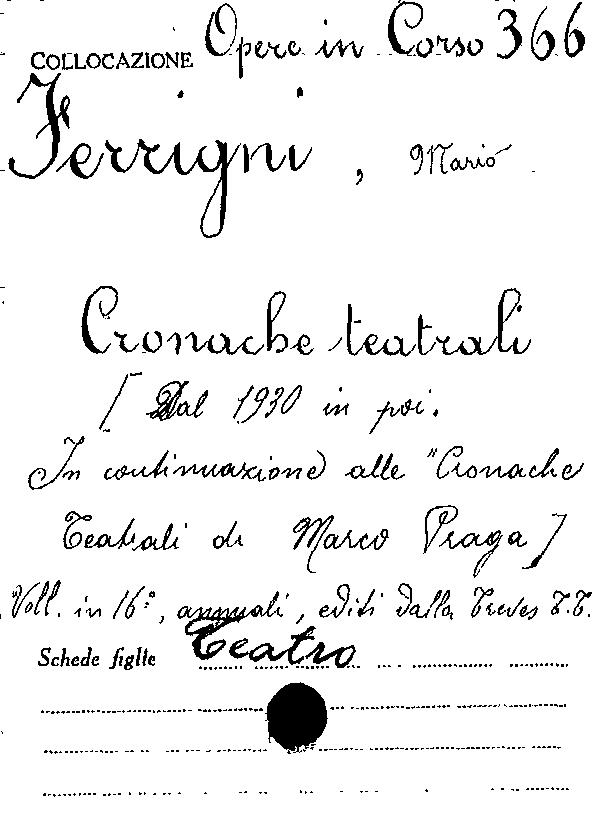 COLLOCAZIONE Opere in Corso 366
Ferrigni, Mario
Cronache teatrali
[ Dal 1930 in poi.
In continuazione alle "Cronache
Teatrali di Marco Praga ]
Voll. in 16°, annuali, editi dalla Treves T.T.
Schede figlie Teatro